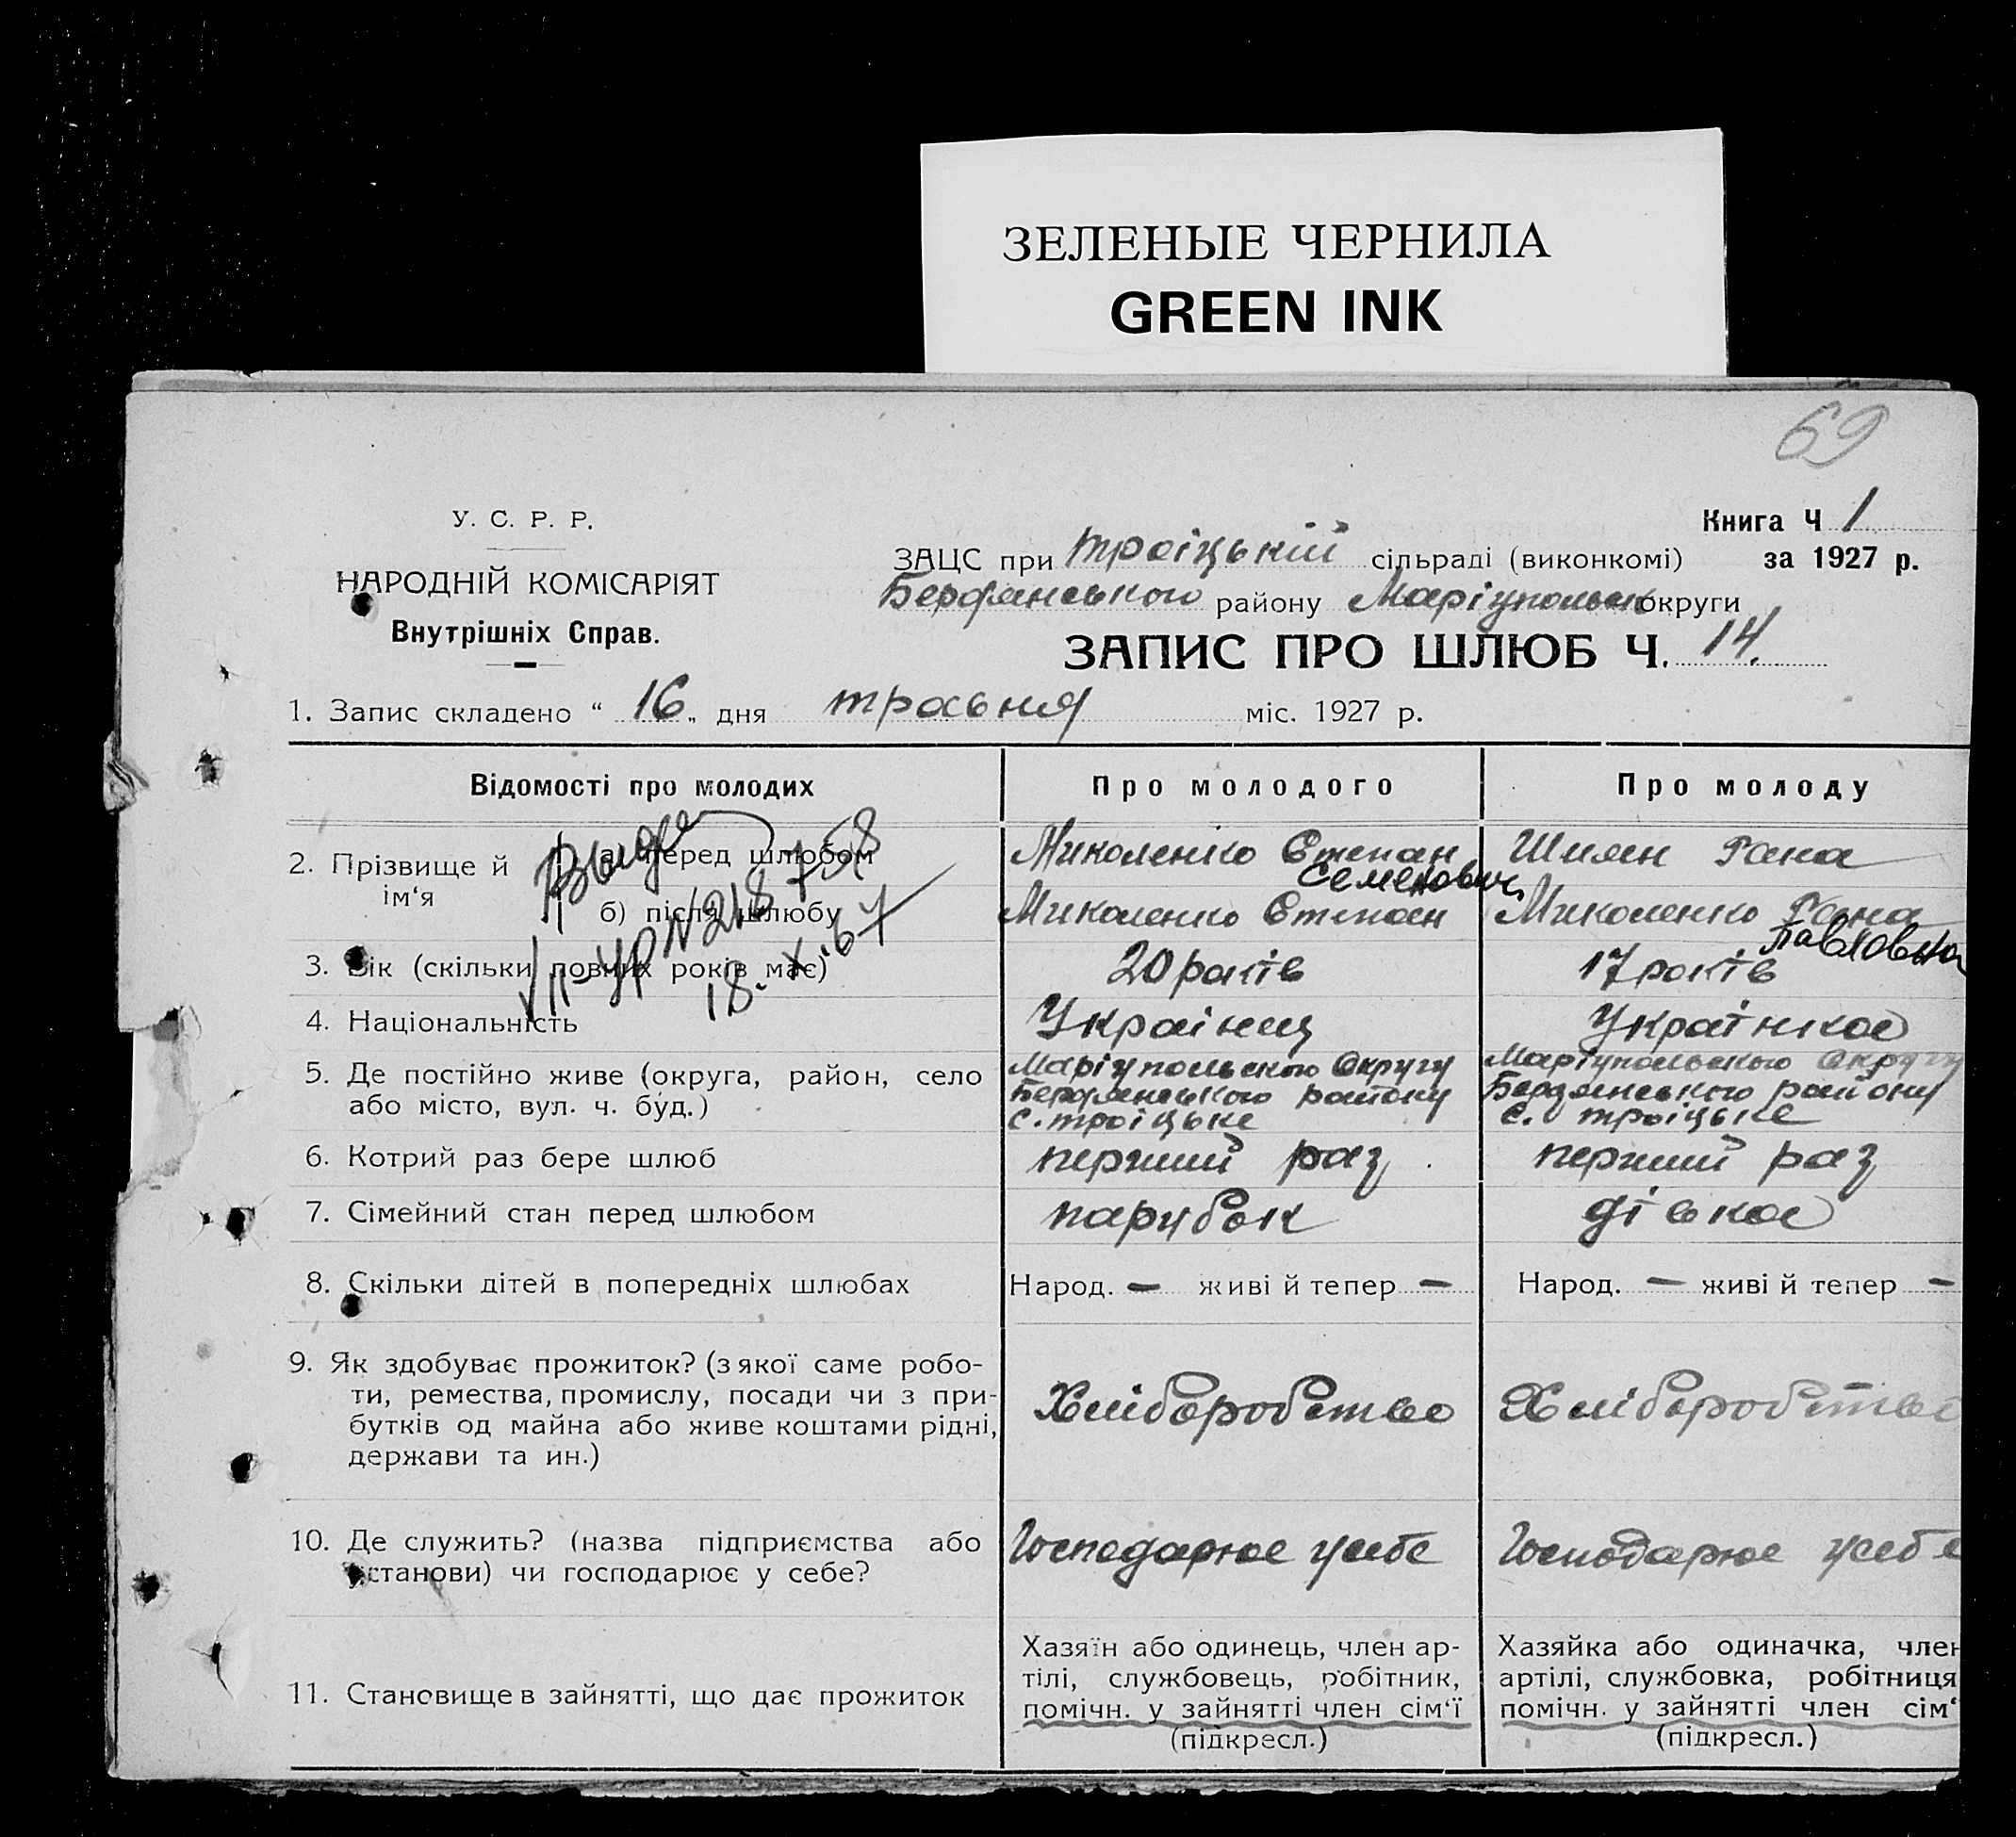 ЗЕЛЕНЫЕ ЧЕРНИЛА
GREEN INK
69
У. С. Р. Р.
НАРОДНІЙ КОМІСАРІЯТ
Внутрішніх Справ.
Книга Ч 1
за 1927 р.
ЗАЦС при Троіцькій сільраді (виконкомі)
Бердянського району Маріупольськ округи
ЗАПИС ПРО ШЛЮБ Ч. 14.
1. Запис складено “ 16 „ дня травня міс. 1927 р.
Відомості про молодих Про молодого Про молоду
2. Прізвище й ім‘я
а) перед шлюбом Миколенко Степан Шиян Гана
Семенович
б) після шлюбу Миколенко Степан Миколенко Гана
Павловна
УР N 218758
18. X. 67
3. Вік (скільки повних років має) 20 років 17 років
4. Національність Украінец Украінка
5. Де постійно живе (округа, район, село або місто, вул. ч. буд.)
Маріупольского Округу
Бердянського району
с. Троіцьке
Маріупольского Округу
Бердянського району
с. Троіцьке
6. Котрий раз бере шлюб перший раз перший раз
7. Сімейний стан перед шлюбом парубок дівка
8. Скільки дітей в попередніх шлюбах Народ. — живі й тепер — Народ. — живі й тепер —
9. Як здобуває прожиток? (з якої саме робо-
ти, ремества, промислу, посади чи з при-
бутків од майна або живе коштами рідні,
держави та ин.)
Хліборобство Хліборобство
10. Де служить? (назва підприємства або
установи) чи господарює у себе?
Господарює усебе Господарює усебе
11. Становище в зайнятті, що дає прожиток
Хазяїн або одинець, член ар-
тілі, службовець, робітник,
помічн. у зайнятті член сім‘ї
(підкресл.)
Хазяйка або одиначка, член
артілі, службовка, робітниця
помічн. у зайнятті член сім‘
(підкресл.)